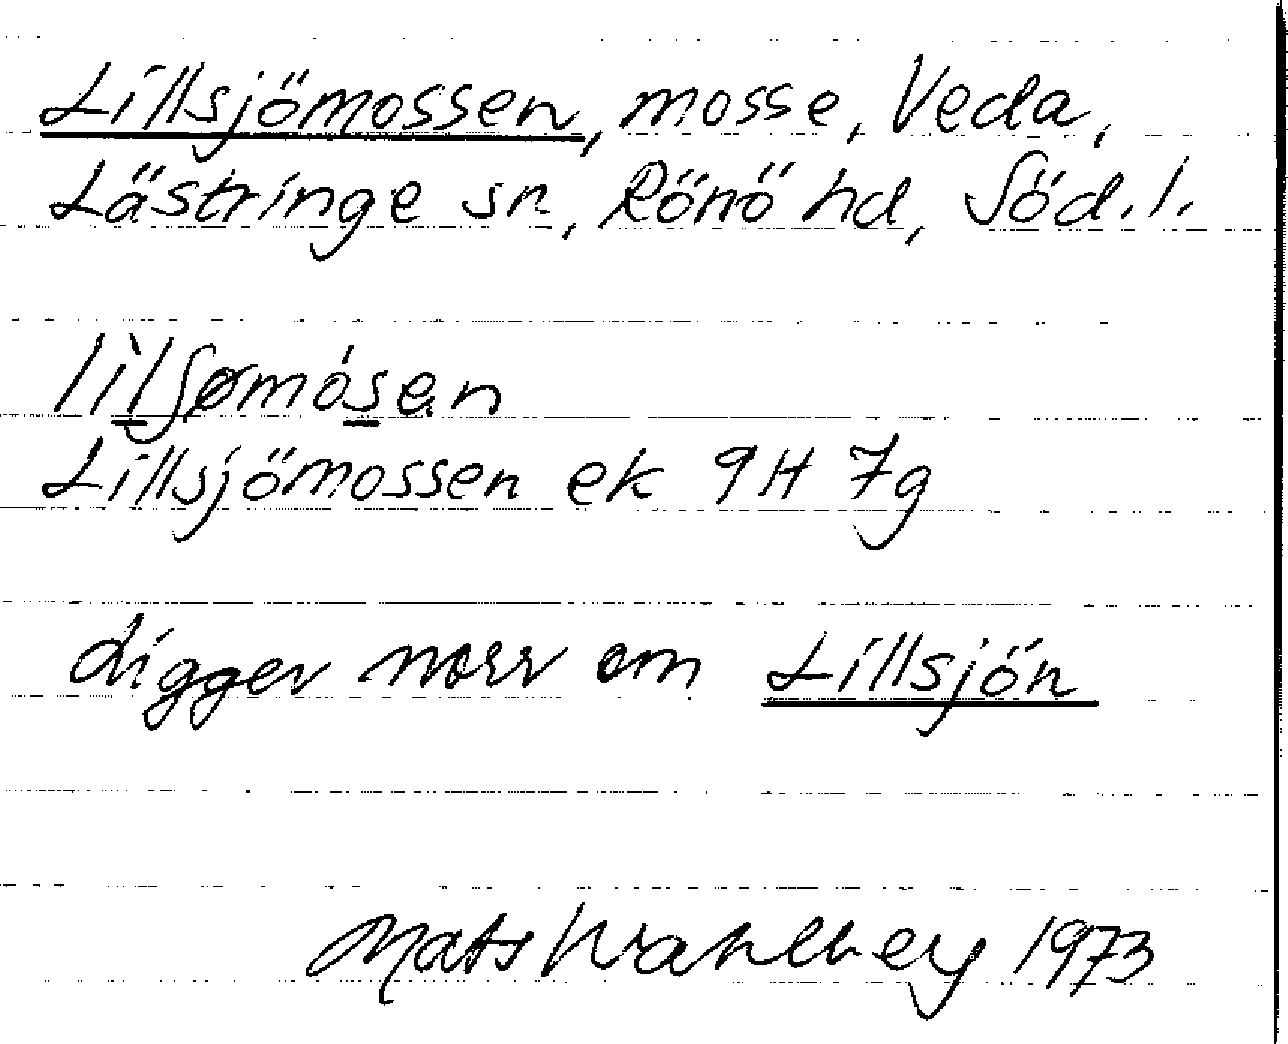 Lillsjömossen, mosse, Veda,
Lästringe sn, Rönö hd, Söd.l.
Lillsjömossen ek 9H 7g
Ligger norr om Lillsjön
Mats Wahlberg 1973